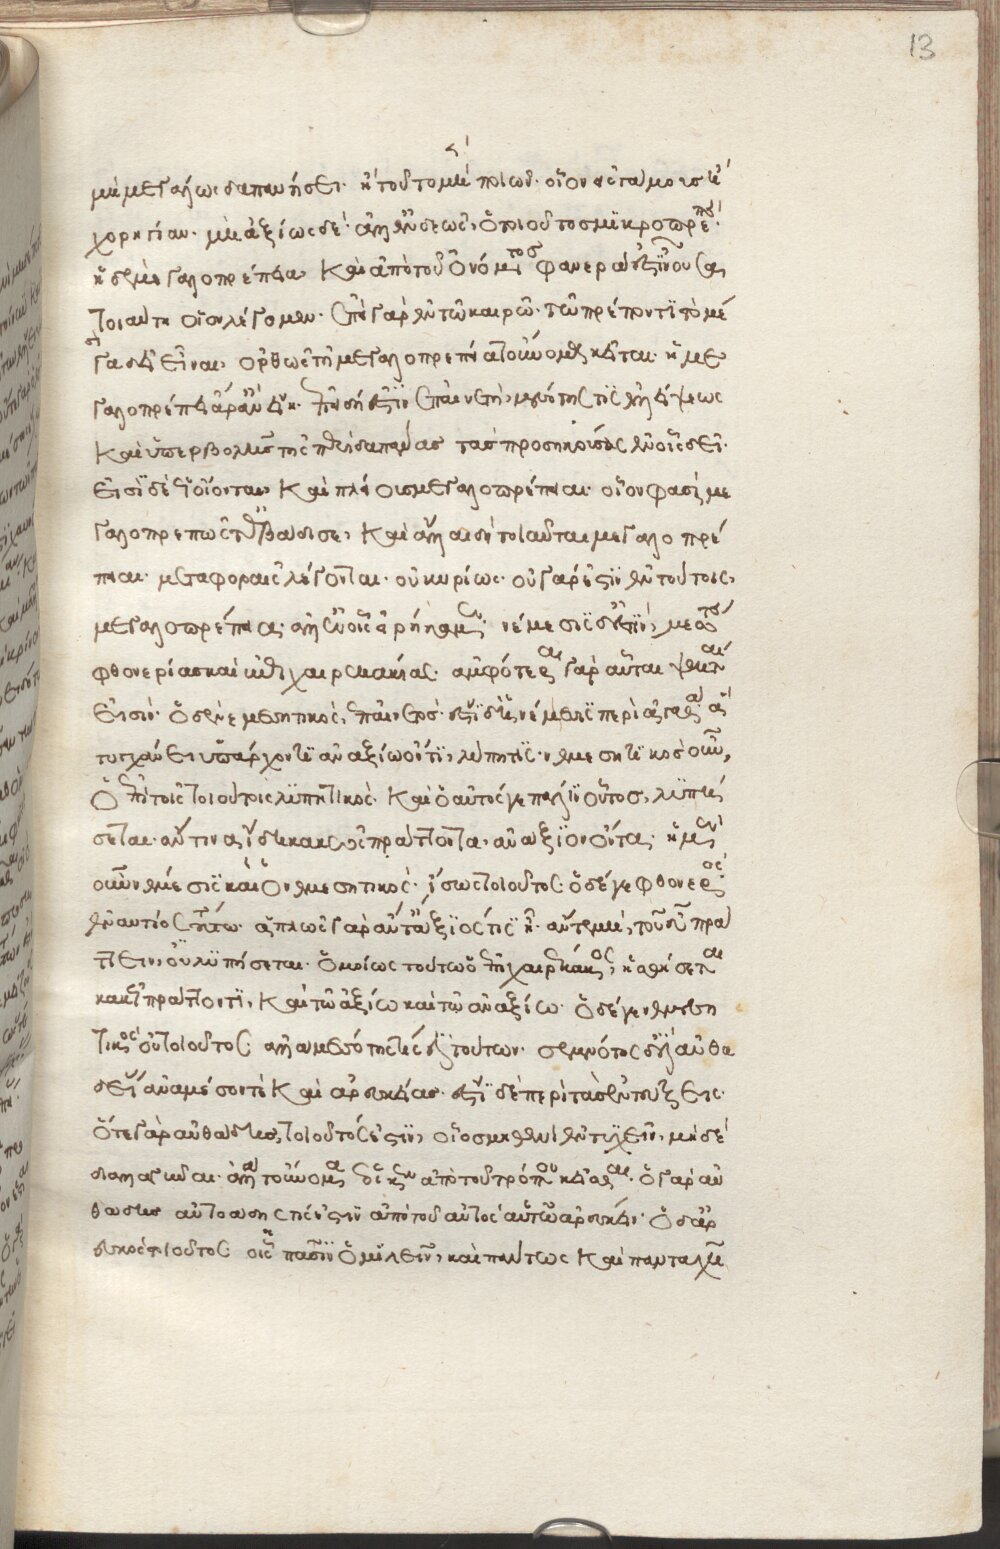 13
μὴ μεγαλείως δαπανήσει· ἢ τοῦτο μὲν ποιῶν· οἷον ἑστιῶν
χορηγίαν· μὴ ἀξίως δέ· ἀλλ' ἐνδεῶς, ὁ τοιοῦτος μικροπρεπής·
ἡ δὲ μεγαλοπρέπεια, καὶ ἀπὸ τοῦ ὀνόματος φανερά ἐστιν οὖσα
τοιαύτη οἵαν λέγομεν· ἐπεὶ γὰρ ἐν τῷ καιρῷ τῷ πρέποντι τὸ μέ
γα ἐστὶ εἶναι, ὀρθῶς τῇ μεγαλοπρεπείᾳ τοὔνομα κεῖται· ἡ με
γαλοπρέπεια ἄρα ἂν εἴη· ἐπειδή ἐστιν ἐπαινετή, μεσότης τις ἐλλείψεως
καὶ ὑπερβολῆς τῆς περὶ δαπάνας τὰς προσηκούσας ἐν οἷς δεῖ·
εἰσὶ δὲ ὡς οἴονται, καὶ πλείους μεγαλοπρέπειαι· οἷον φασὶ με
γαλοπρεπῶς ἐβάδισε, καὶ ἄλλαι δὴ τοιαῦται μεγαλοπρέ
πειαι· μεταφοραῖς λέγονται· οὐ κυρίως· οὐ γάρ ἐστιν ἐν τούτοις
μεγαλοπρέπεια· ἀλλ' ἐν οἷς εἰρήκαμεν· νέμεσις δ' ἐστὶν, μεσότης
φθονερίας καὶ ἐπιχαιρεκακίας· ἀμφότεραι γὰρ αὗται ψεκταί
εἰσίν· ὁ δὲ νεμεσητικός, ἐπαινετός· ἐστὶ δ' ἡ νέμεσις περὶ ἀγαθὰ ἃ
τυγχάνει ὑπάρχοντι ἀναξίῳ ὄντι, λύπη τις· νεμεσητικὸς οὖν,
ὁ ἐπὶ τοῖς τοιούτοις λυπητικός· καὶ ὁ αὐτός γε πάλιν οὗτος, λυπηθή
σεται ἄν τινα ἴδῃ κακῶς πράττοντα, ἀνάξιον ὄντα· ἡ μὲν
οὖν νέμεσις καὶ ὁ νεμεσητικός· ἴσως τοιοῦτος· ὁ δέ γε φθονερὸς
ἐναντίος τούτῳ· ἁπλῶς γὰρ ἄν τε ἄξιός τις ᾖ ἄν τε μή, τοῦ εὖ πράτ
τειν, λυπήσεται· ὁμοίως τούτῳ ὁ ἐπιχαιρέκακος, ἡσθήσεται
κακῶς πράττοντι, καὶ τῷ ἀξίῳ καὶ τῷ ἀναξίῳ· ὁ δέ γε νεμεση
τικὸς οὐ τοιοῦτος· ἀλλὰ μεσότης τίς ἐστι τούτων· σεμνότης δ' ἐστὶν αὐθα
δείας ἀναμέσον τε καὶ ἀρεσκείας· ἐστὶ δὲ περὶ τὰς ἐντεύξεις·
ὅ τε γὰρ αὐθάδης, τοιοῦτός ἐστιν, οἷος μηθενὶ ἐντυχεῖν, μηδὲ
διαλεγῆναι· ἀλλὰ τοὔνομα δοκεῖ ἀπὸ τοῦ τρόπου κεῖσθαι· ὁ γὰρ αὐ
θάδης αὐτοάδης τίς ἐστιν ἀπὸ τοῦ αὐτὸς αὑτῷ ἀρέσκειν· ὁ δ' ἄρ
εσκος τοιοῦτος οἷος πᾶσιν ὁμιλεῖν, καὶ πάντως καὶ πανταχῇ